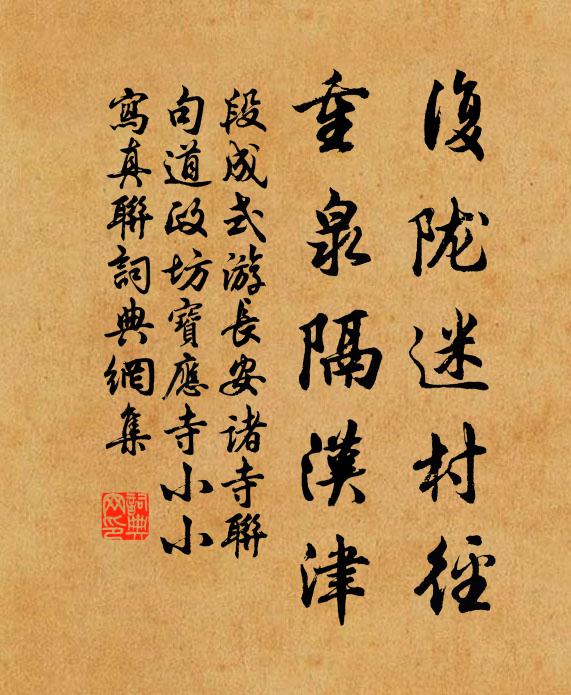 復陇迷村徑
重泉隔漢津
段成式游長安诸寺聯
句道政坊寶應寺小小
寫真聯詞典網集
詞典網印